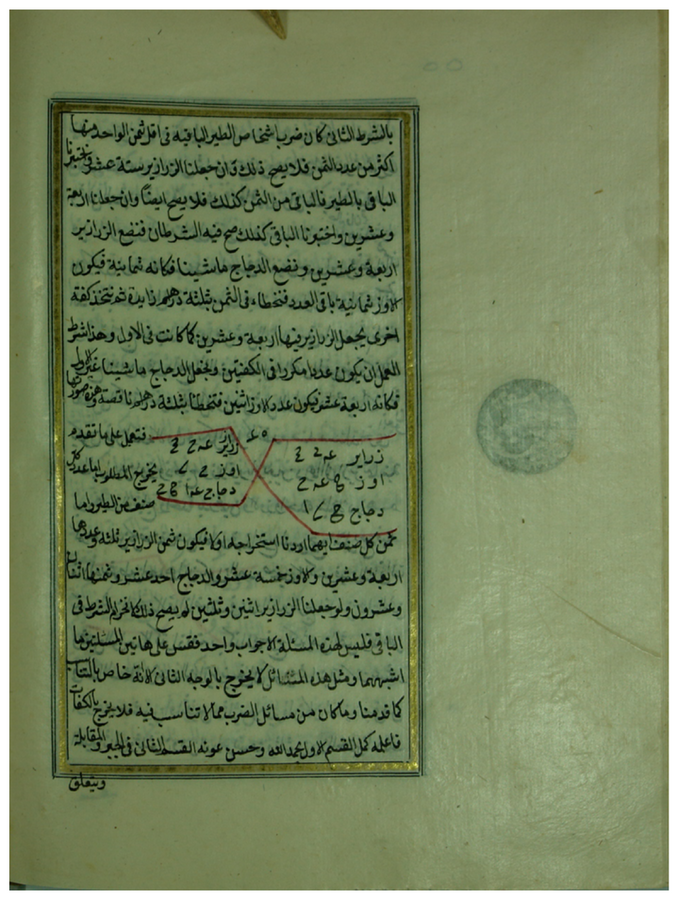 بالشرط الثانى كان ضرب اشخاص الطير الباقيه فى اقل ثمن الواحد منها
اكثر من عدد الثمن فلا يصح ذلك وان جعلنا الزرازير ستة عشر واختبرنا
الباقى بالطير فالباقى من الثمن كذلك فلا يصح ايضًا وان جعلنا اربعة
وعشرين واختبرنا الباقى كذلك صح فيه الشرطان فنضع الزرازير
اربعة وعشرين ونضع الدجاج ما شينا فكانه ثمانية فيكون
الاوز ثمانية باقى العدد فنخطاء فى الثمن بثلثة دراهم زايدة ثم نتخذ كفة
اخرى يجعل الزرازير فيها اربعة وعشرين كما كانت فى الاول وهذا شرط
العمل ان يكون عددا مكررا فى الكفتين ونجعل الدجاج ما شينا غير الاول
فكانه اربعة عشر فيكون عدد الاوز اثنين فتخطئنا بثلثة دراهم ناقصة وهذه صورتها
زرازير
اوز
دجاج
زرازير
اوز
دجاج
فتعمل على ما تقدم
يخرج المطلوب اما عدد كل
صنف من الطير واما
ثمن كل صنف ايهما اردنا استخراجه اولا فيكون ثمن الزرازير ثلثة وعددها
اربعة وعشرين والاوز خمسة عشر والدجاج احد عشر وثمنها اثنان
وعشرون ولو جعلنا الزرازير اثنين وثلثين لم يصح ذلك لانخرام الشرط فى
الباقى فليس لهذه المسئلة الا جواب واحد فقس على هاتين المسئلتين ما
اشبههما ومثل هذه المسائل لا يخرج بالوجه الثانى لانه خاص بالتناسب
كما قدمنا وما كان من مسائل الضرب مما لا تناسب فيه فلا يخرج بالكفات
فاعلمه كمل القسم الاول بحمد الله وحسن عونه القسم الثانى فى الجبر والمقابلة
ويتعلق